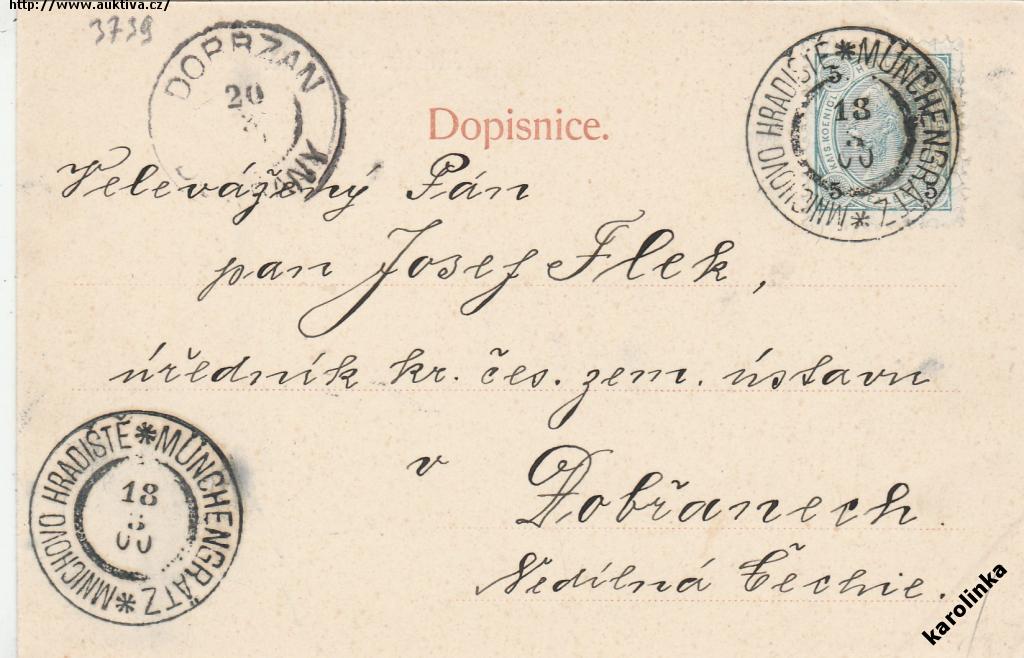 http://www.auktiva.cz/
3739
DOBRZAN
20
Dopisnice.
MNICHOVO HRADIŠTĚ * MÜNCHENGRÄTZ *
18
00
5 5 5
Velevážený Pán
pan Josef Flek,
úředník kr. čes. zem. ústavu
v Dobřanech.
Nedílná Čechie.
MNICHOVO HRADIŠTĚ * MÜNCHENGRÄTZ *
18
00
karolinka